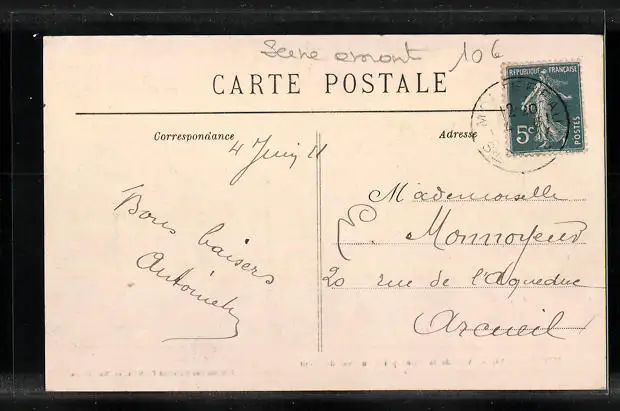 Seine amont 106
CARTE POSTALE
REPUBLIQUE FRANÇAISE
5c
POSTES
Correspondance
Adresse
4 Juin 11
Bons baisers
Mademoiselle
E. Monnoyeur
20 rue de l'Aqueduc
Arcueil